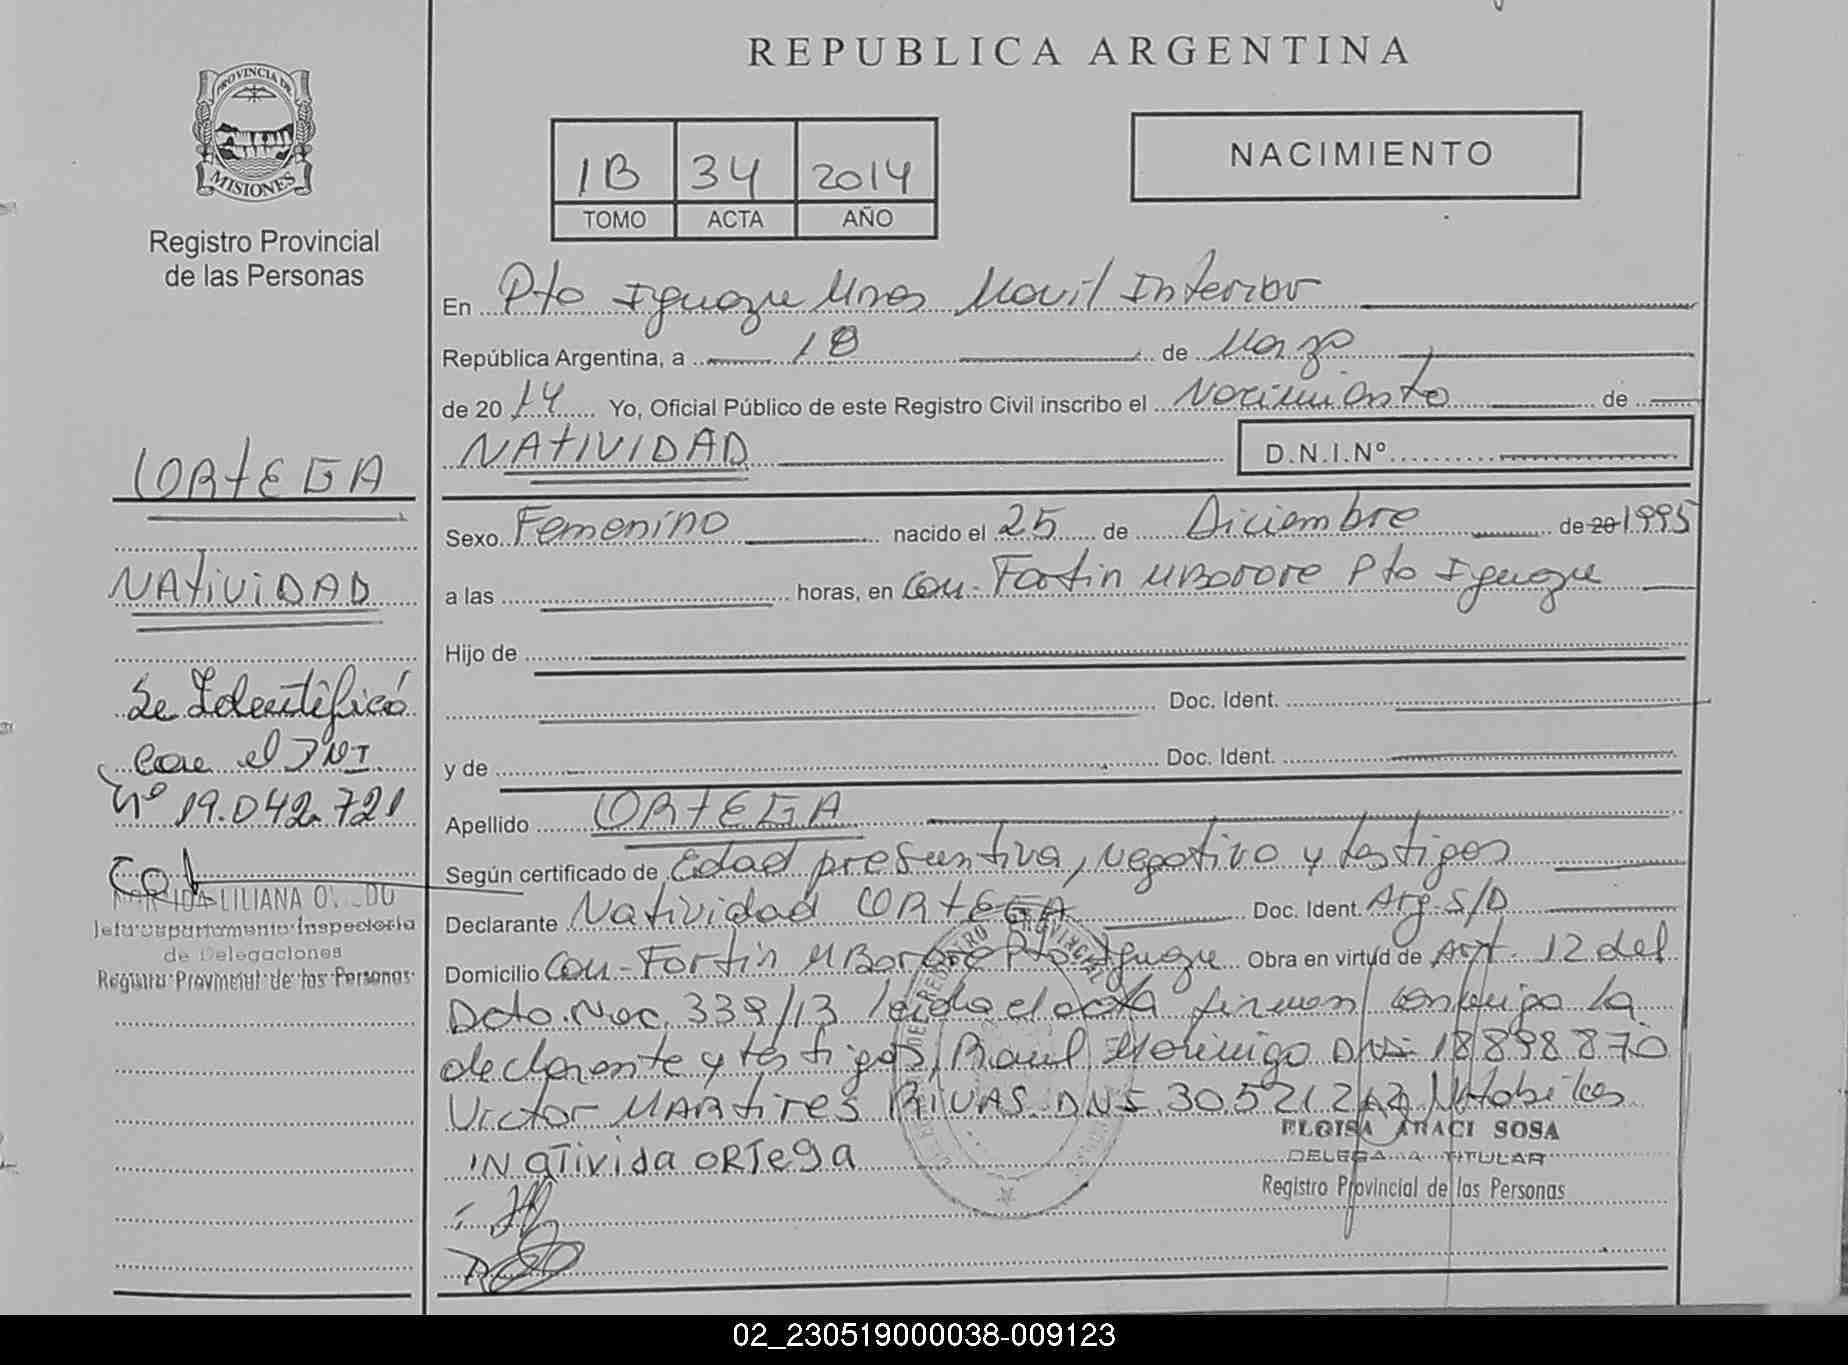 REPUBLICA ARGENTINA
PROVINCIA DE
MISIONES
Registro Provincial
de las Personas
1B 34 2014
TOMO ACTA AÑO
NACIMIENTO
En Pto Iguazu Mnes Movil Interior
República Argentina, a 18 de Marzo
de 2014 Yo, Oficial Público de este Registro Civil inscribo el Nacimiento de
NATIVIDAD
D.N.I.Nº
ORTEGA
NATIVIDAD
Se Identificó
con el DNI
Nº 19.042.721
LILIANA
Jefa Departamento Inspectoría
de Delegaciones
Registro Provincial de las Personas
Sexo Femenino nacido el 25 de Diciembre de 20 1995
a las horas, en Com. Fortin MBorore Pto Iguazu
Hijo de
Doc. Ident.
y de Doc. Ident.
Apellido ORTEGA
Según certificado de Edad presuntiva, Negativo y testigos
Declarante Natividad ORTEGA Doc. Ident. Arg. S/D
Domicilio Com. Fortin MBorore Pto Iguazu Obra en virtud de Art. 12 del
Dcto. Nac. 339/13 leída el acta firman conmigo la
declarante y testigos, Raul Morinigo DNI 18898870
Victor MARtires RIVAS DNI 30521212
NATividaORTega
ELOISA ARACI SOSA
DELEGADA TITULAR
Registro Provincial de las Personas
02_230519000038-009123